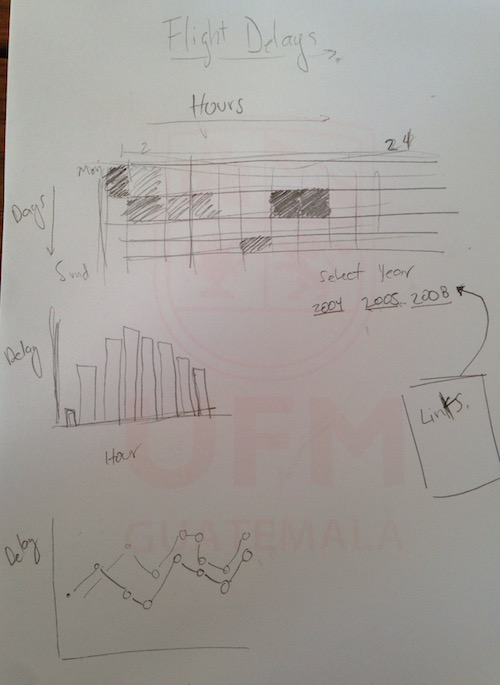 Flight Delays
Hours
1 2 24
Mon
Days
Sund
Select Year
2004 2005 2008
Delay
Links.
Hour
UFM
GUATEMALA
Delay